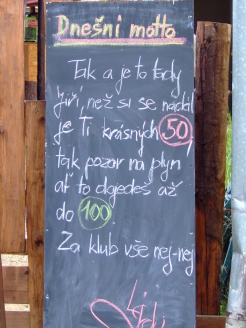 Dnešní motto
Tak a je to tady
Jiří, než si se nadál
je Ti krásných 50,
tak pozor na plyn
ať to dojedeš až
do 100.
Za klub vše nej-nej